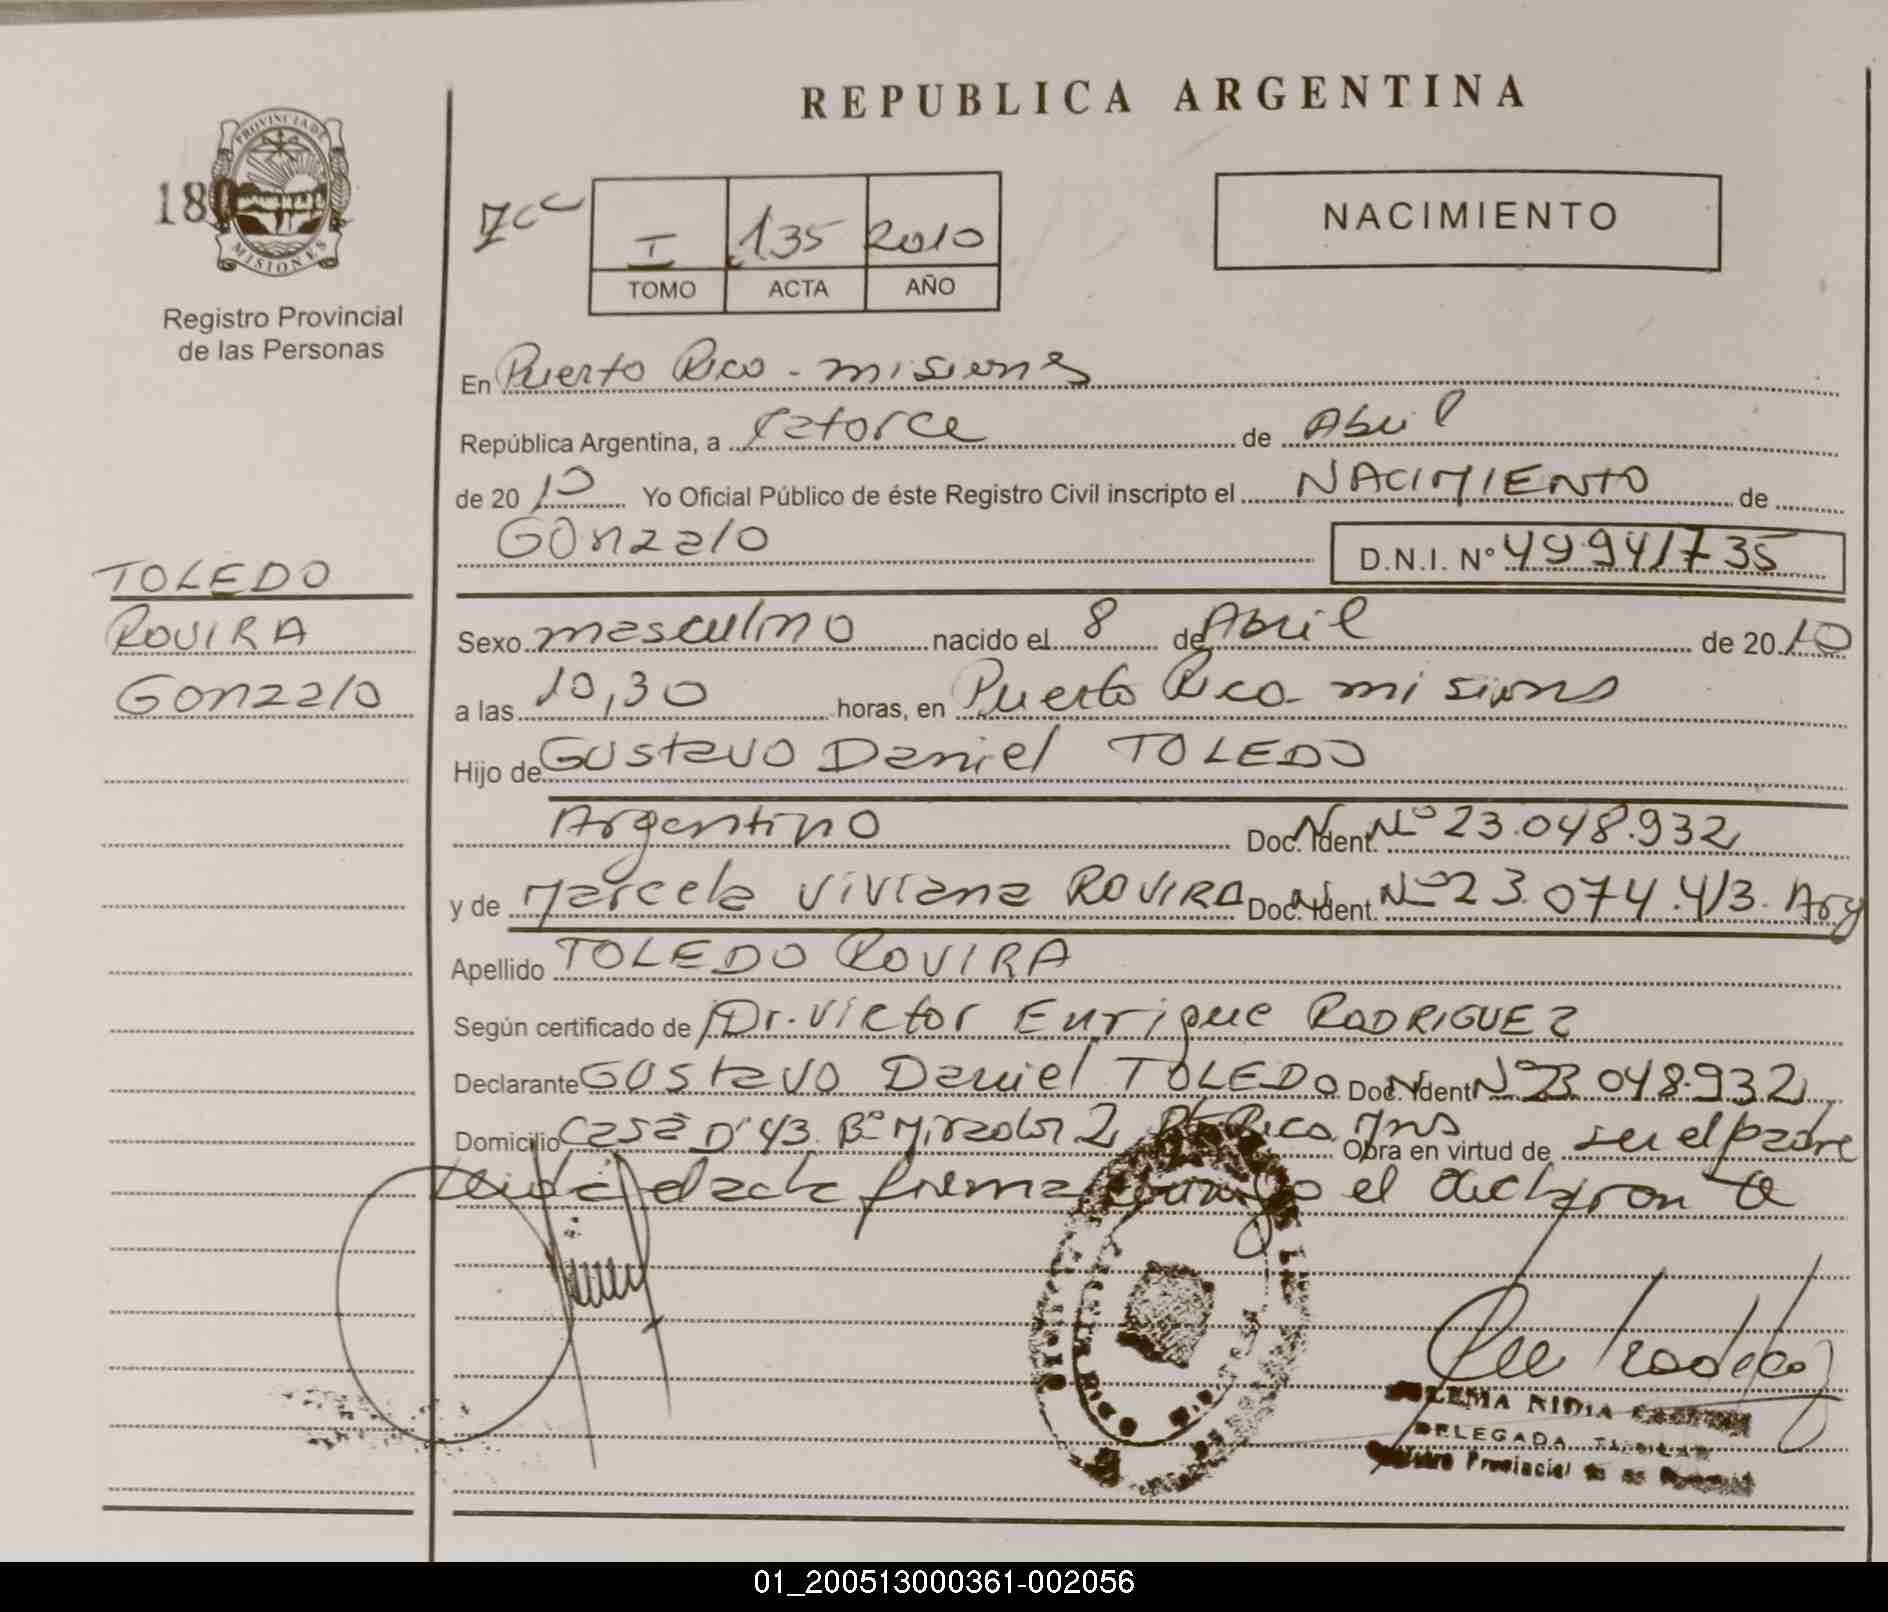 REPUBLICA ARGENTINA
PROVINCIA DE
MISIONES
180
Registro Provincial
de las Personas
I 135 2010
TOMO ACTA AÑO
NACIMIENTO
En Puerto Rico - misiones
República Argentina, a Catorce de Abril
de 20 10 Yo Oficial Público de éste Registro Civil inscripto el NACIMIENTO de
Gonzalo D.N.I. N° 49941735
TOLEDO
ROVIRA
Gonzalo
Sexo masculino nacido el 8 de Abril de 20 10
a las 10,30 horas, en Puerto Rico misiones
Hijo de Gustavo Daniel TOLEDO
Argentino Doc. Ident. N° 23.048.932
y de Marcela Viviana ROVIRA Doc. Ident. N° 23.074.413. Arg
Apellido TOLEDO ROVIRA
Según certificado de Dr. Victor Enrique RODRIGUEZ
Declarante Gustavo Daniel TOLEDO Doc. Ident. N° 23.048.932
Domicilio Casa D' 43. B° Mirador 2 Pto Rico Mns Obra en virtud de ser el padre
Leida el acta firma conmigo el declarante
ZULEMA NIDIA
DELEGADA TITULAR
Registro Provincial de las Personas
01_200513000361-002056